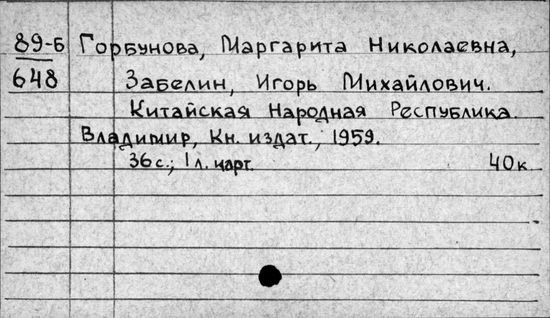 89-Б Горбунова, Маргарита Николаевна,
648 Забелин, Игорь Михайлович.
Китайская Народная Республика.
Владимир, Кн. издат., 1959.
36 с.; 1 л. карт. 40 к.